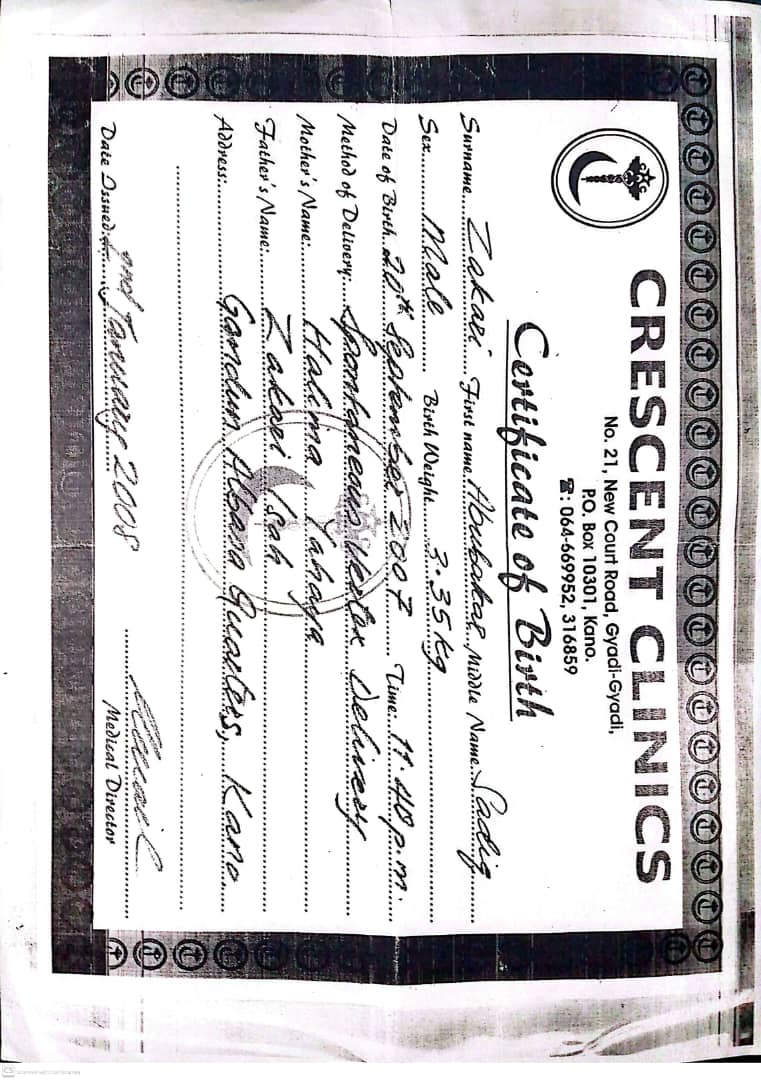 CRESCENT CLINICS
No. 21, New Court Road, Gyadi-Gyadi,
P.O. Box 10301, Kano.
☎: 064-669952, 316859
Certificate of Birth
Surname... Zakari... First name. Abubakar. Middle Name. Sadiq
Sex... Male... Birth Weight... 3.35 kg
Date of Birth. 20th September 2007... Time: 11.40 p.m.
Method of Delivery... Spontaneous Vertex Delivery
Mother's Name:... Halima Yahaya
Father's Name:... Zakari Isah
Address:... Gandun Albasa Quarters, Kano
Date Issued:... 2nd January 2008
Medical Director
CS Scanned with CamScanner